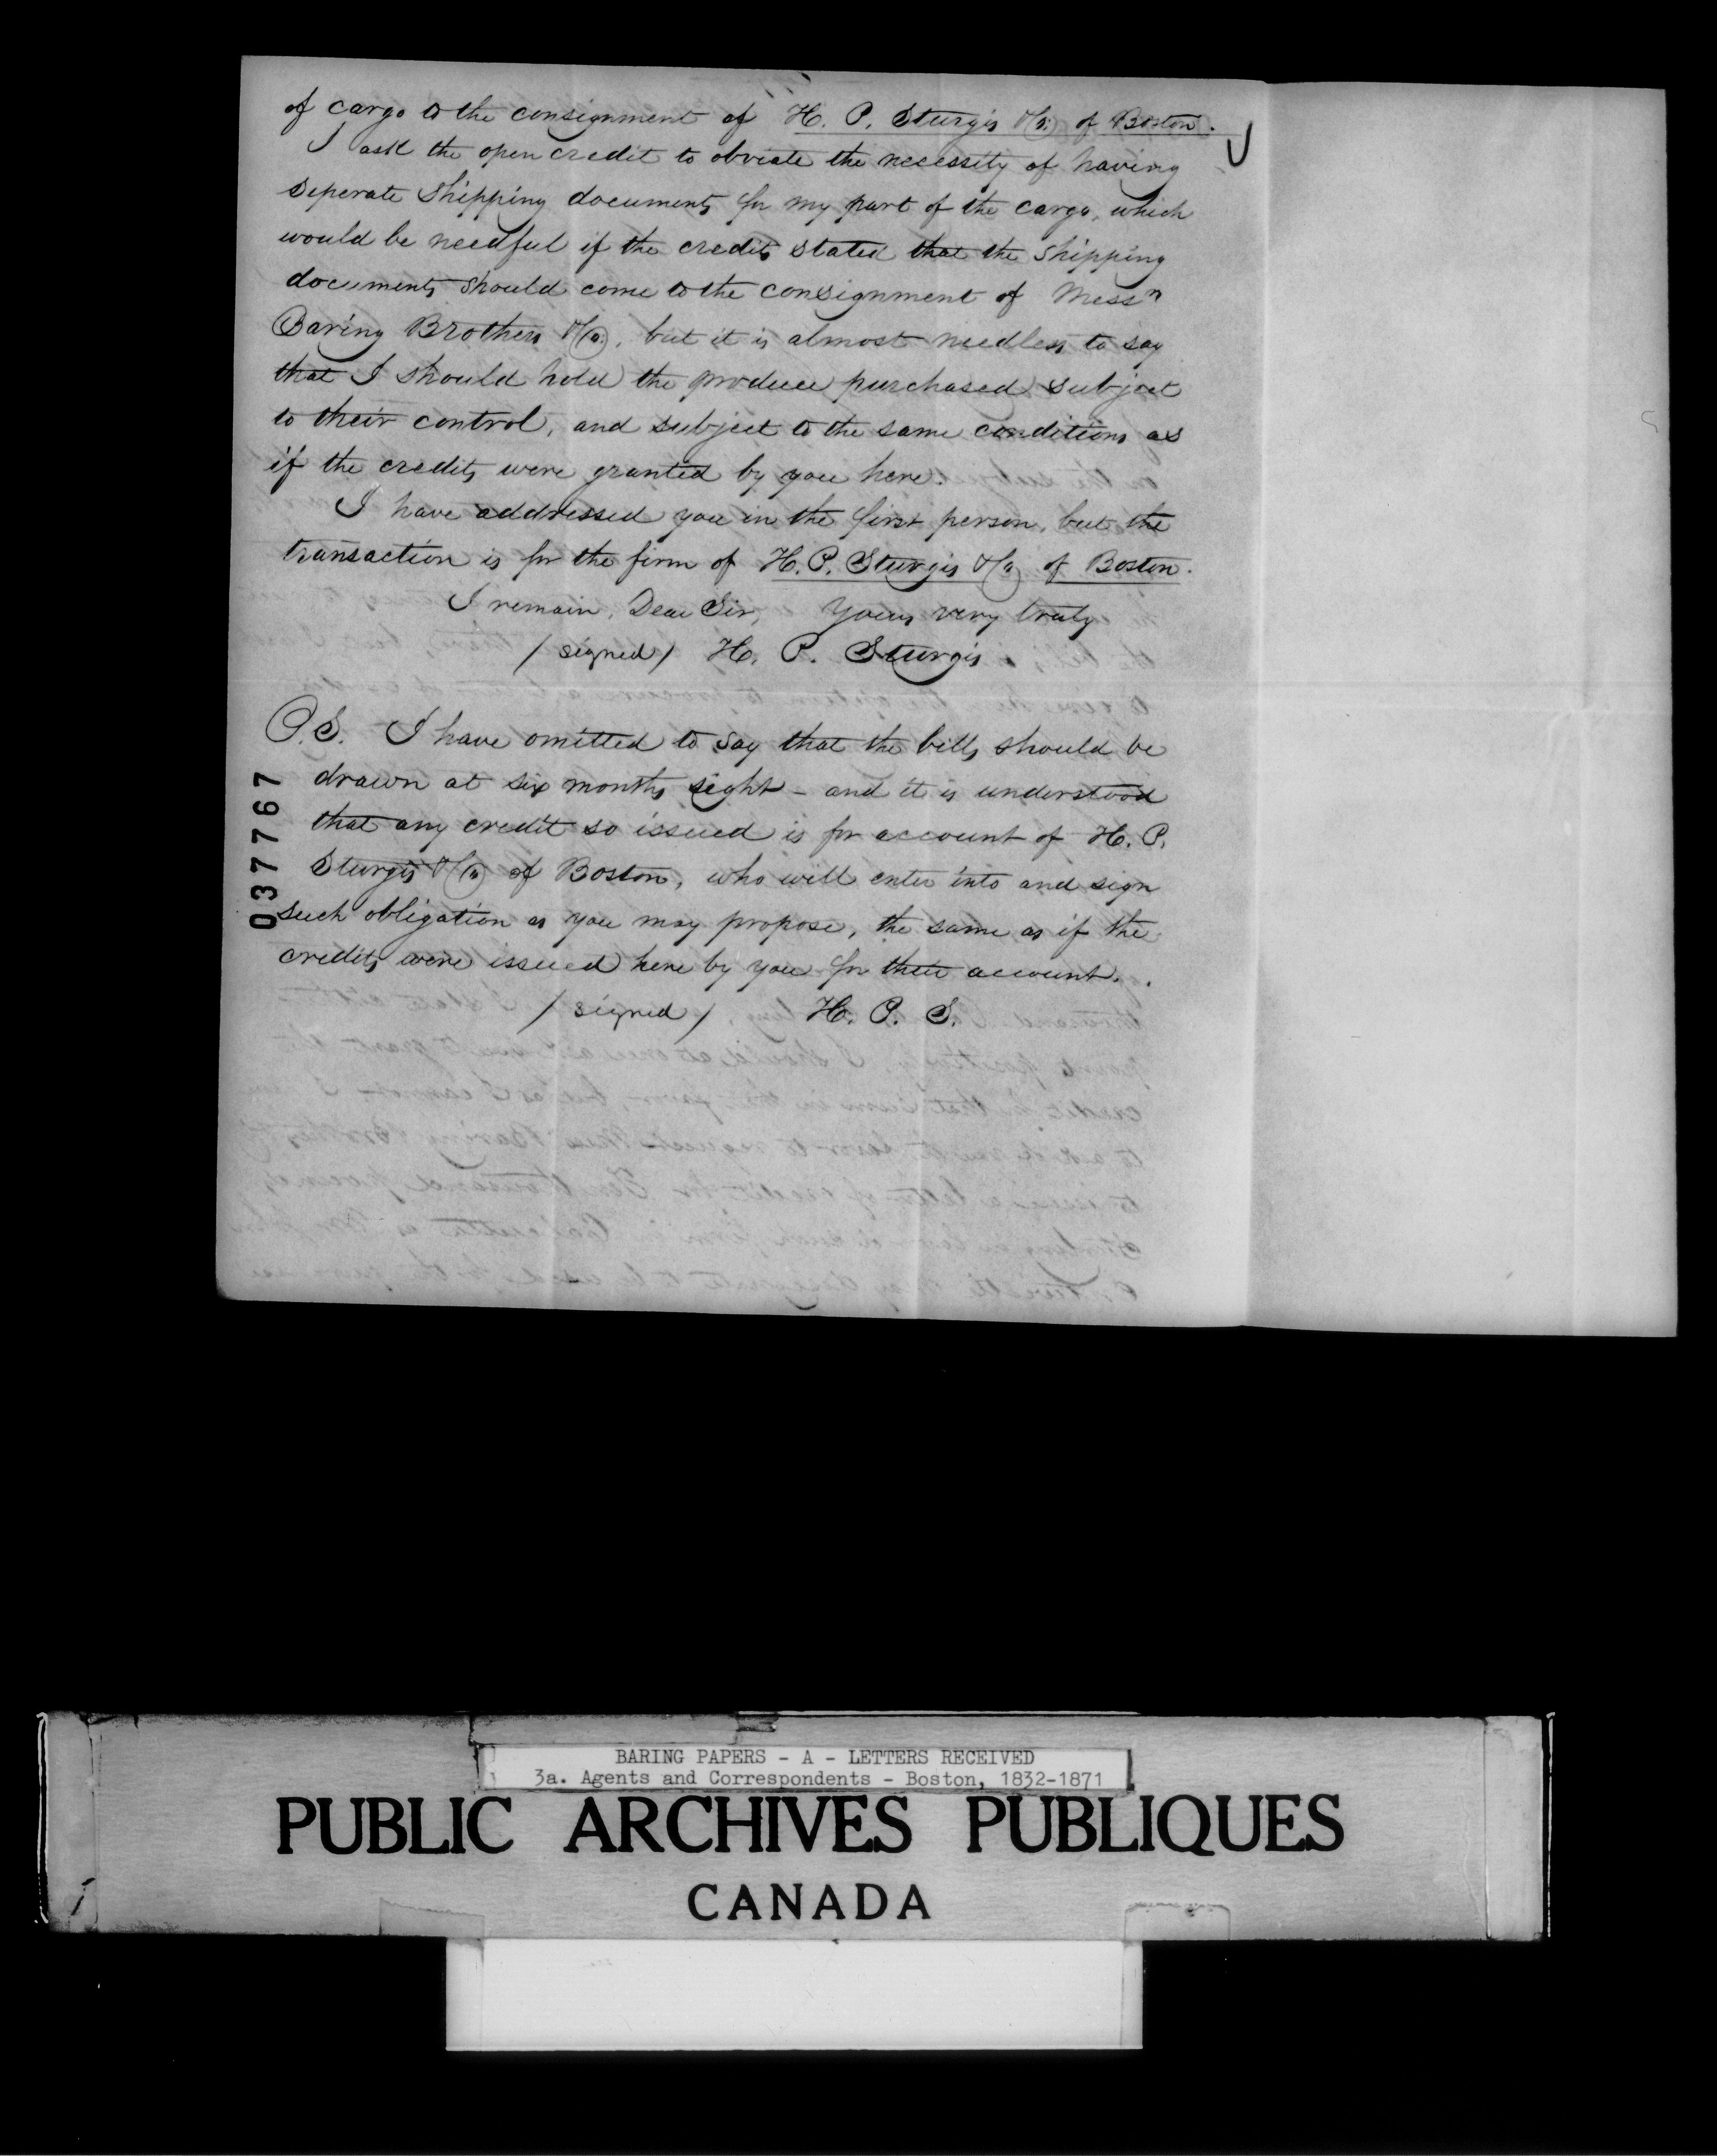 of cargo to the consignment of H. P. Sturgis & Co: of Boston.
I ask the open credit to obviate the necessity of having
seperate shipping documents for my part of the cargo, which
would be needful if the credits stated that the shipping
documents should come to the consignment of Messrs
Baring Brothers & Co:, but it is almost needless to say
that I should hold the produce purchased subject
to their control, and subject to the same conditions as
if the credits were granted by you here.
I have addressed you in the first person, but the
transaction is for the firm of H. P. Sturgis & Co of Boston.
I remain, Dear Sir, Yours very truly
/ signed / H. P. Sturgis
P.S. I have omitted to say that the bills should be
drawn at six months sight – and it is understood
that any credit so issued is for account of H. P.
Sturgis & Co of Boston, who will enter into and sign
such obligation as you may propose, the same as if the
credits were issued here by you for their account.
/ signed / H. P. S.
037767
BARING PAPERS - A - LETTERS RECEIVED
3a. Agents and Correspondents - Boston, 1832-1871
PUBLIC ARCHIVES PUBLIQUES
CANADA